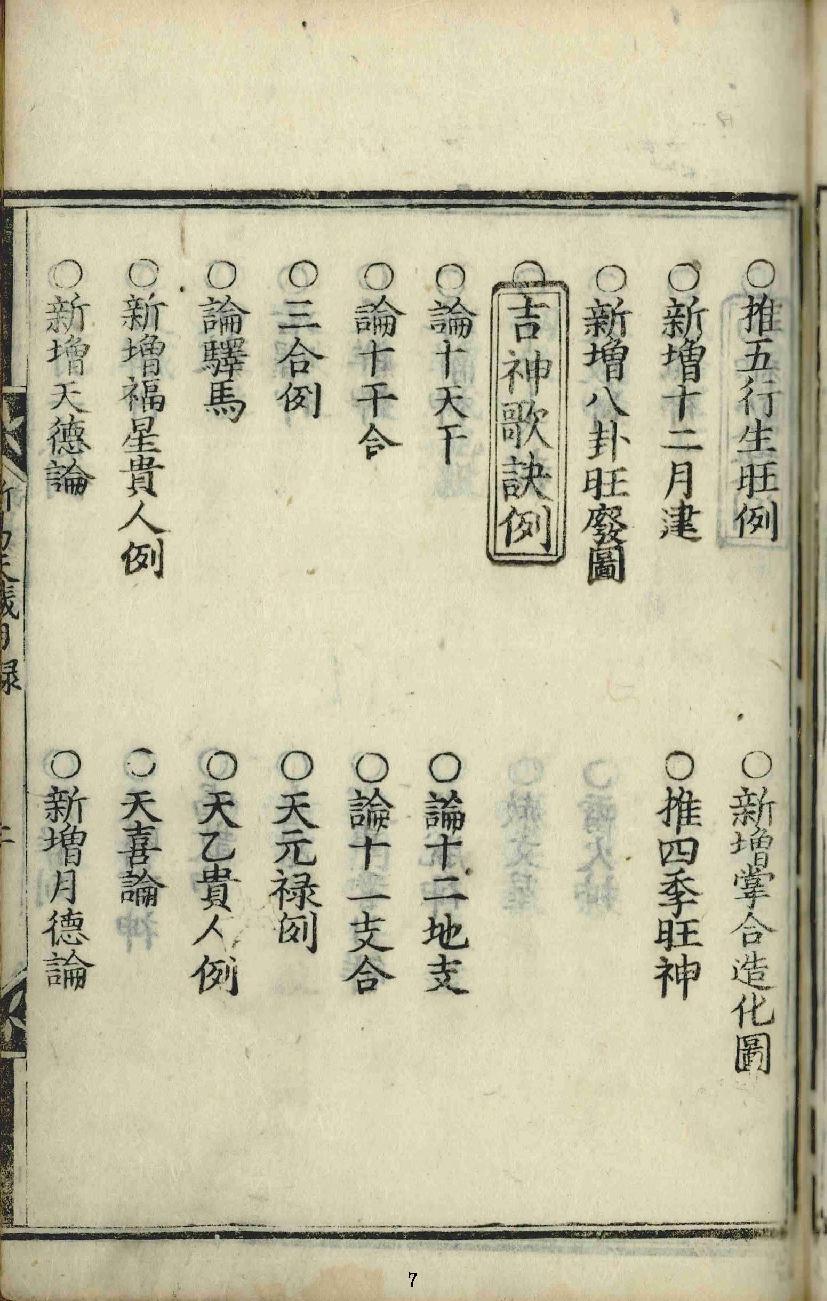 ○推五行生旺例
○新增掌合造化圖
○新增十二月建
○推四季旺神
○新增八卦旺廢圖
○吉神歌訣例
○論十天干
○論十二地支
○論十干合
○論十二支合
○三合例
○天元禄例
○論驛馬
○天乙貴人例
○新增福星貴人例
○天喜論
○新增天德論
○新增月德論
7